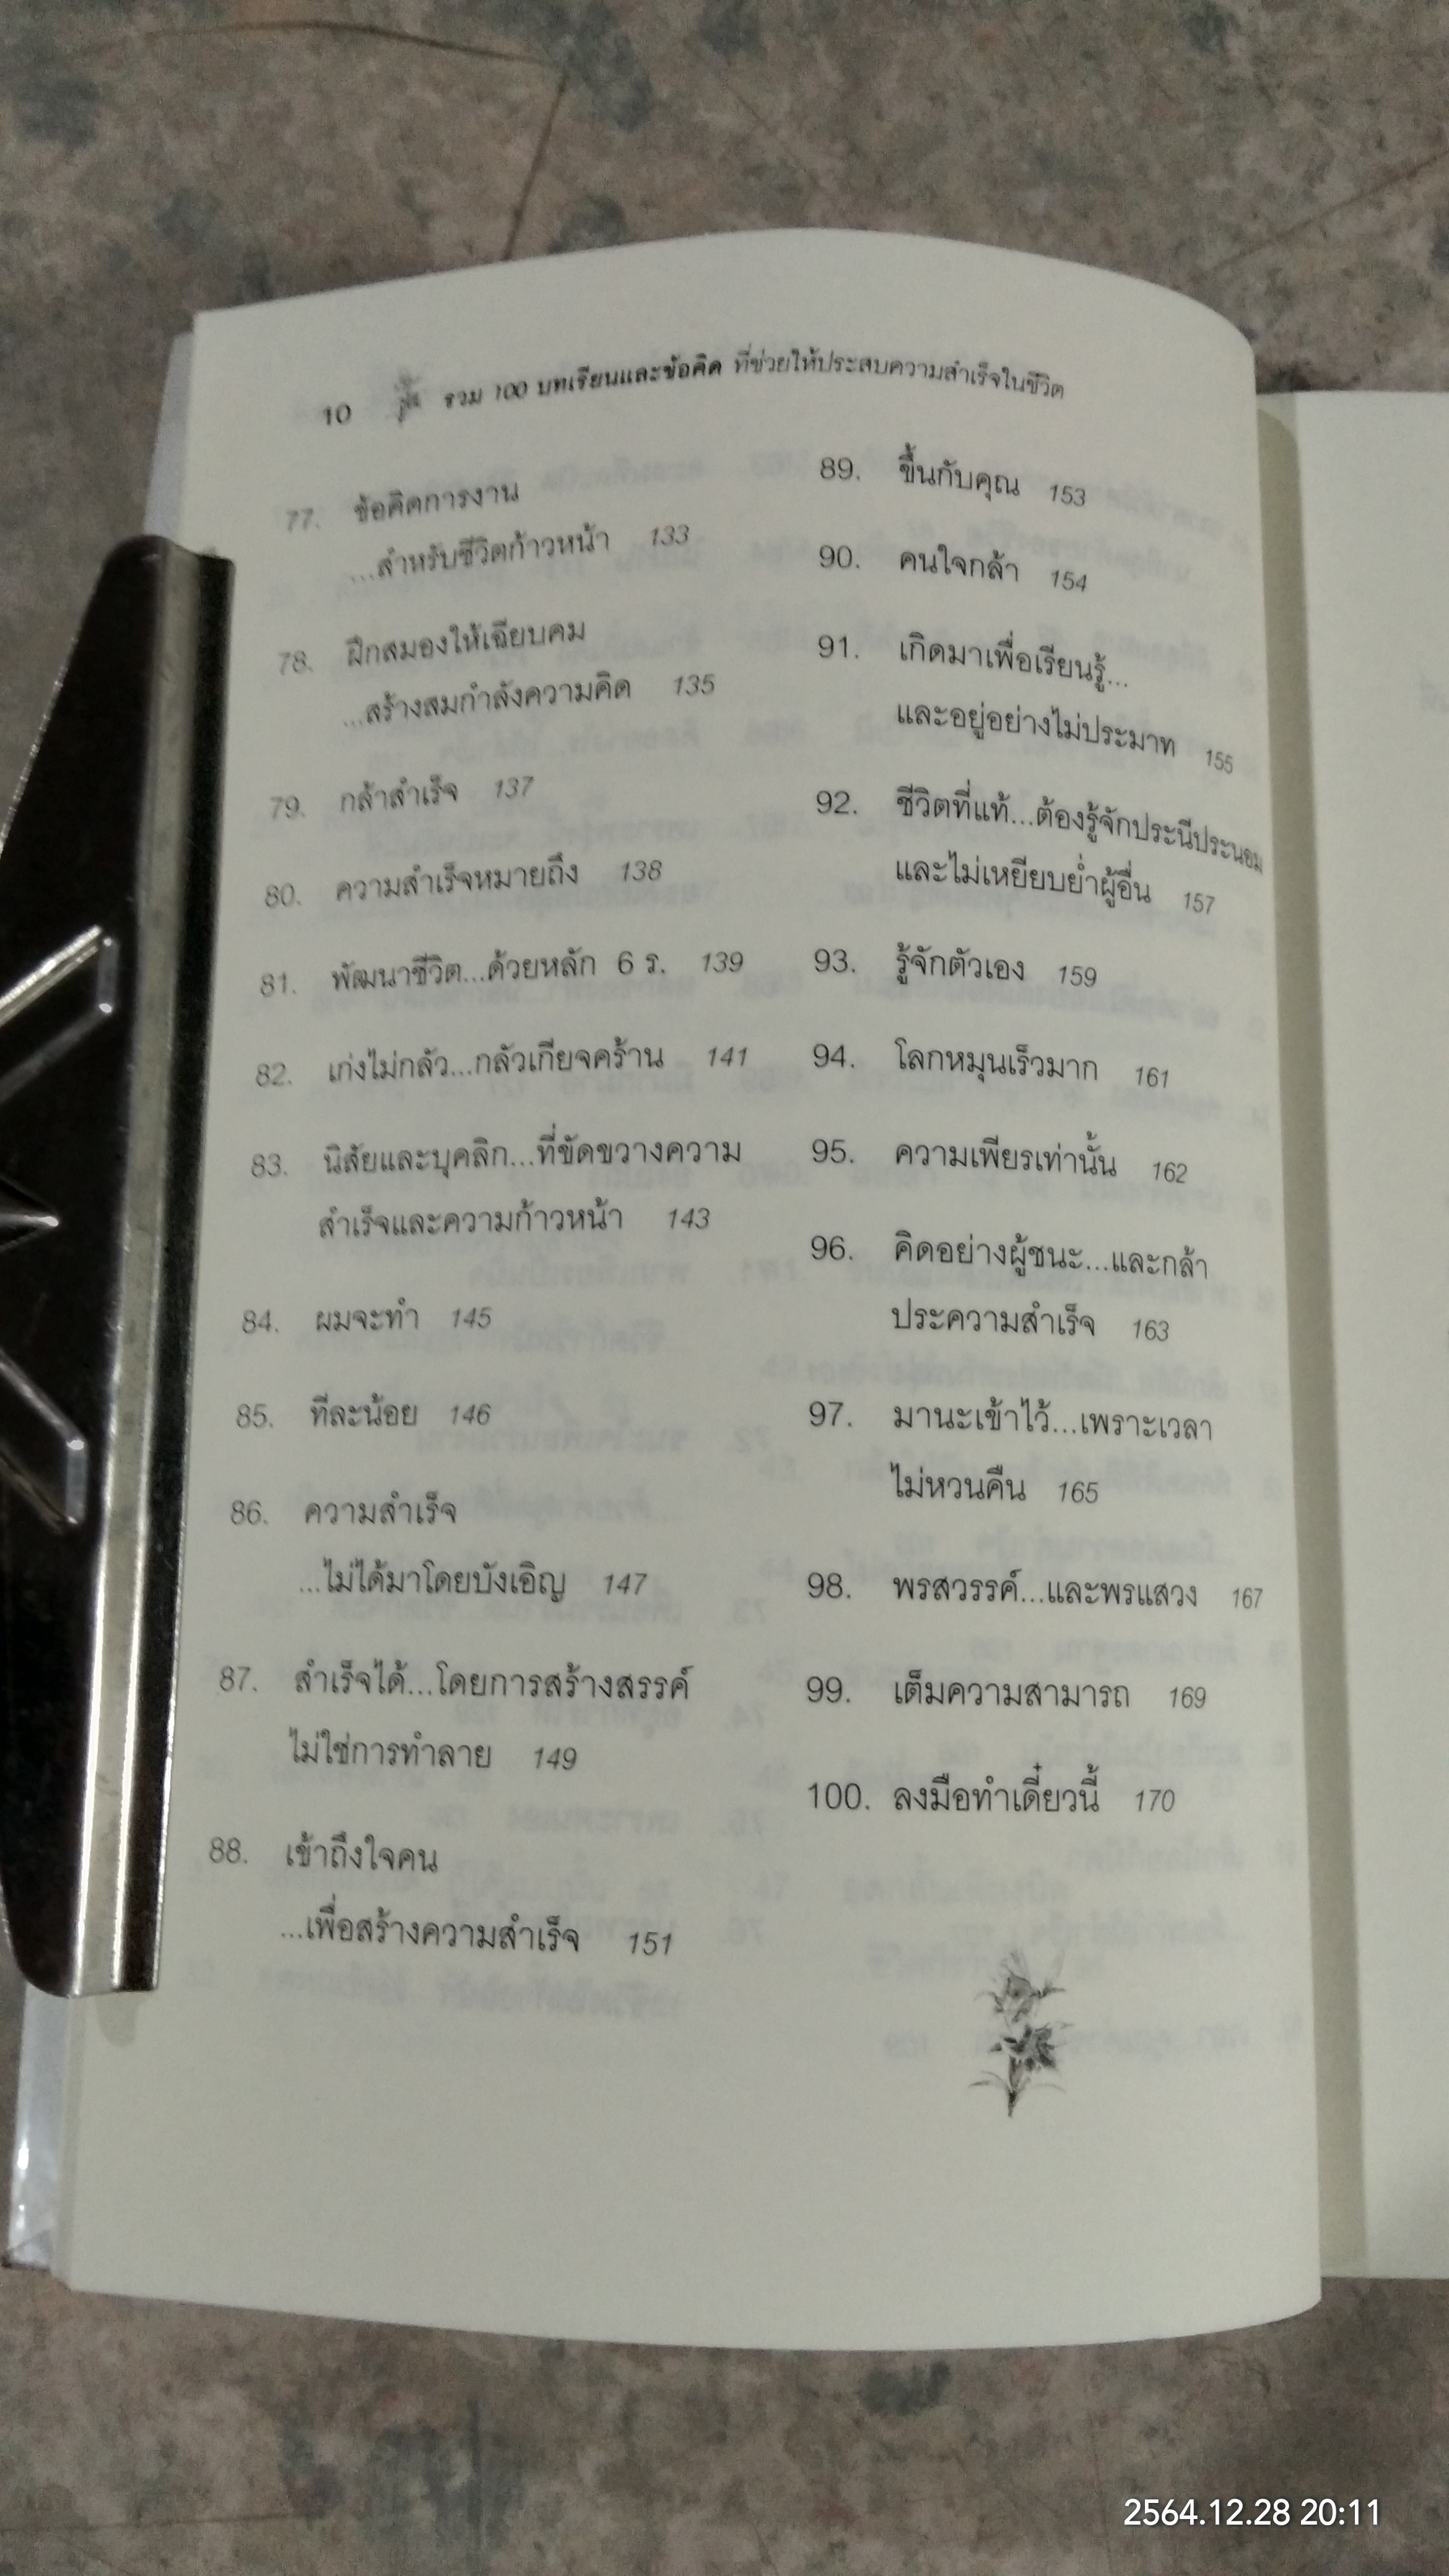 10 รวม 100 บทเรียนและข้อคิด ที่ช่วยให้ประสบความสำเร็จในชีวิต
77. ข้อคิดการงาน
...สำหรับชีวิตก้าวหน้า 133
78. ฝึกสมองให้เฉียบคม
...สร้างสมกำลังความคิด 135
79. กล้าสำเร็จ 137
80. ความสำเร็จหมายถึง 138
81. พัฒนาชีวิต...ด้วยหลัก 6 ร. 139
82. เก่งไม่กลัว...กลัวเกียจคร้าน 141
83. นิสัยและบุคลิก...ที่ขัดขวางความ
สำเร็จและความก้าวหน้า 143
84. ผมจะทำ 145
85. ทีละน้อย 146
86. ความสำเร็จ
...ไม่ได้มาโดยบังเอิญ 147
87. สำเร็จได้...โดยการสร้างสรรค์
ไม่ใช่การทำลาย 149
88. เข้าถึงใจคน
...เพื่อสร้างความสำเร็จ 151
89. ขึ้นกับคุณ 153
90. คนใจกล้า 154
91. เกิดมาเพื่อเรียนรู้...
และอยู่อย่างไม่ประมาท 155
92. ชีวิตที่แท้...ต้องรู้จักประนีประนอม
และไม่เหยียบย่ำผู้อื่น 157
93. รู้จักตัวเอง 159
94. โลกหมุนเร็วมาก 161
95. ความเพียรเท่านั้น 162
96. คิดอย่างผู้ชนะ...และกล้า
ประความสำเร็จ 163
97. มานะเข้าไว้...เพราะเวลา
ไม่หวนคืน 165
98. พรสวรรค์...และพรแสวง 167
99. เต็มความสามารถ 169
100. ลงมือทำเดี๋ยวนี้ 170
2564.12.28 20:11